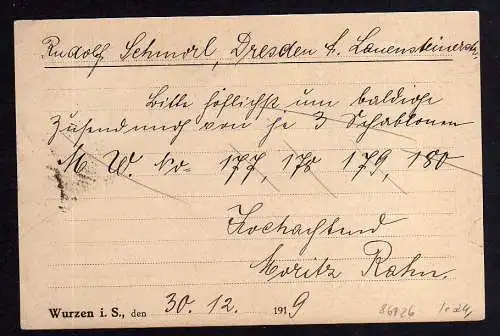 Rudolf Schmorl, Dresden
Bitte höflichst um baldige
Zusendung von je 3 Schablonen
M. W. No 177, 178 179, 180
Hochachtend
Moritz Rahn.
Wurzen i. S., den 30. 12. 1919
86926